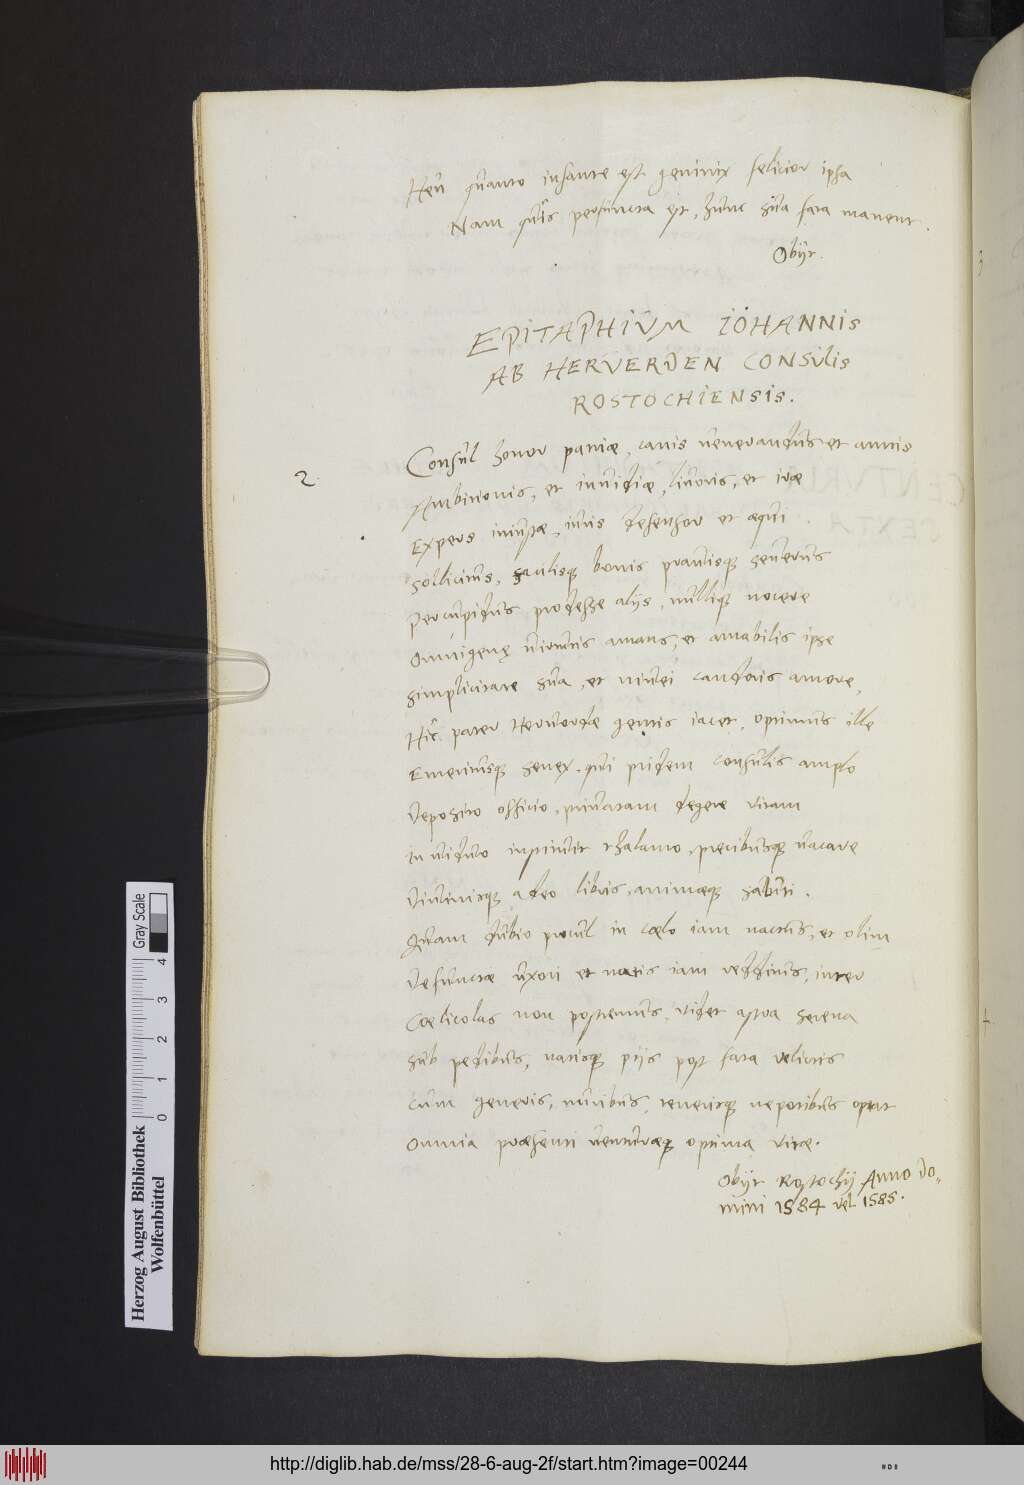 Heu quanto infante est genitrix felicior ipsa
Nam quîs perfuncta est, hunc sua fata manent.
Obijt.
EPITAPHIUM IOHANNIS
AB HERVERDEN CONSULIS
ROSTOCHIENSIS.
2. Consul honor patriae, canis venerandus et annis
Ambitionis, et invidiae, livoris, et irae
Expers iniustae, iuris defensor et aequi
Sollicitus, facilisque bonis pravisque severus
Percupidus prodesse alijs, nullique nocere
Omnigenę virtutis amans, et amabilis ipse
Simplicitate sua, et nivei candoris amore,
Hîc pater Hervordae gentis iacet, optimus ille
Emeritusque senex, qui pridem consulis amplo
Deposito officio, privatam degere vitam
In viduo instituit thalamo, precibusque vacare
Divinisque adeo libris, animaeque saluti.
Quam dubio procul in coelo iam nactus, et olim
Defunctae uxori et natis iam redditus, inter
Coelicolas non postremus, videt astra serena
Sub pedibus, natisque pijs post fata relictis
Cum generis, nuribus, tenerisque nepotibus optat
Omnia praesenti venturaeque optima vitae.
Obijt Rostochij Anno Do-
mini 1584 vel 1585.
Gray Scale
0 1 2 3 4
Herzog August Bibliothek
Wolfenbüttel
http://diglib.hab.de/mss/28-6-aug-2f/start.htm?image=00244